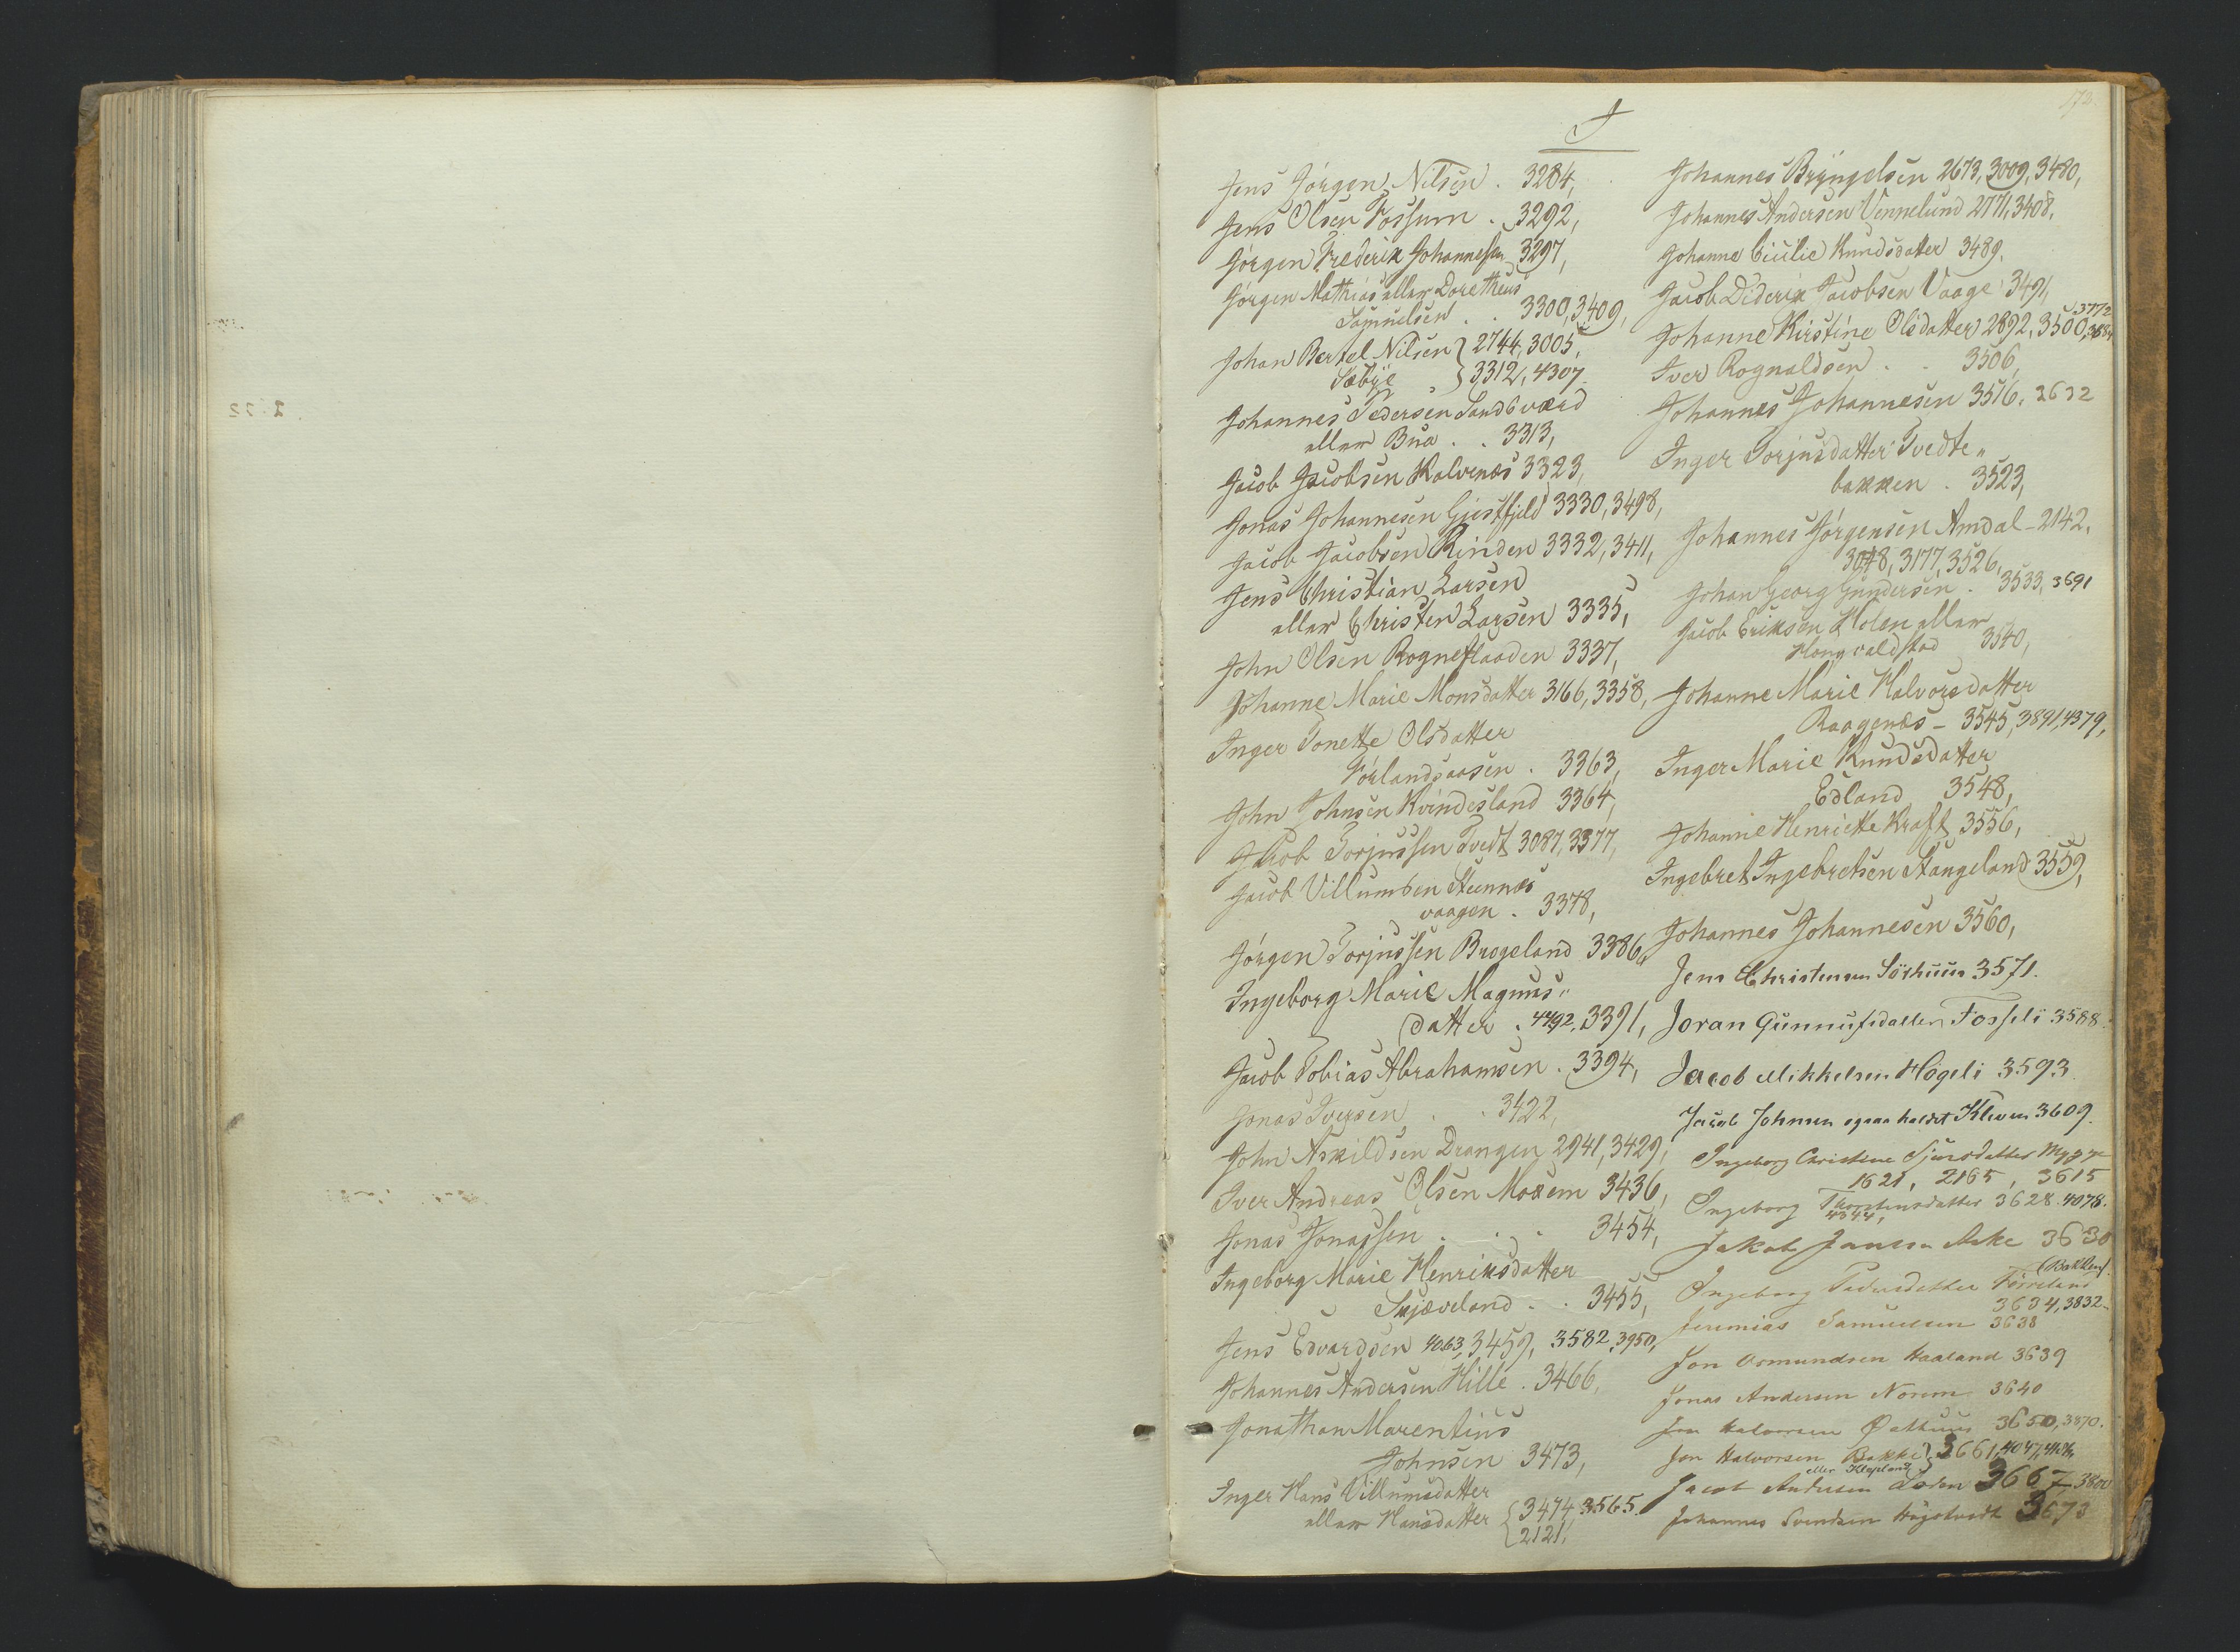 J
Jens Jörgen Nilsen . 3284,
Jens Olsen Fossum . 3292,
Jörgen Frederik Johannessen 3297,
Jörgen Mathias eller Doretheus
Samuelsen . . 3300, 3409,
Johan Bertel Nilsen } 2744, 3005,
Sæbye } 3312, 4307.
Johannes Pedersen Sandsværd
eller Bua . . 3313,
Jacob Jacobsen Kalvenæs 3323,
Jonas Johannesen Gjestfjeld 3330, 3498,
Jacob Jacobsen Rinden 3332, 3411,
Jens Christian Larsen
eller Christen Larsen 3335,
John Olsen Rogneflaaden 3337,
Johanne Marie Monsdatter 3166, 3358,
Inger Tonette Olsdatter
Förlandsaasen . 3363,
John Johnsen Kvindesland 3364,
Jacob Torjussen Tvedt 3087, 3377,
Jacob Villumsen Steennes
vaagen . 3378,
Jörgen Torjussen Brogeland 3386,
Ingeborg Marie Magnus"
datter . 4492, 3391,
Jacob Tobias Abrahamsen . 3394,
Jonas Iversen . . 3422,
John Askildsen Drangen 2941, 3429,
Iver Andreas Olsen Moxem 3436,
Jonas Jonassen . . . 3454,
Ingeborg Marie Henriksdatter
Skjæveland . . 3455,
Jens Edvardsen 4063, 3459, 3582, 3950,
Johannes Andersen Hille . 3466,
Jonathan Marentius
Johnsen 3473,
Inger Hans Villumsdatter
eller Hansdatter { 3474, 3565.
2121,
Johannes Bryngelsen 2673, 3009, 3480,
Johannes Andersen Vennelund 2771, 3408,
Johanne Cicilie Knudsdatter 3489.
Jacob Diderik Jacobsen Vaage 3491,
3772
Johanne Kirstine Olsdatter 2892, 3500,
Iver Rognaldsen . . 3506,
Johannes Johannesen 3516, 3632
Inger Torjusdatter Tvedte"
bakken . 3523,
Johannes Jörgensen Amdal - 2142,
3048, 3177, 3526,
Johan Georg Gundersen . 3533, 3691
Jacob Eriksen Holen eller
Hongvaldstad 3540,
Johanne Marie Halvorsdatter
Raagenæs - 3545, 3891, 4379,
Inger Marie Knudsdatter
Edland 3548,
Johanne Henriette Kraft 3556,
Ingebret Ingebretsen Stangeland 3559,
Johannes Johannesen 3560,
Jens Christensen Sörhuus 3571.
Joran Gunnufsdatter Fosseli 3588.
Jacob Mikkelsen Högeli 3593.
Jacob Johnsen ogsaa kaldet Kleven 3609.
Ingeborg Christine Sjursdatter Mygge
1621, 2165, 3615
Ingeborg Thorstensdatter 3628. 4078.
4344,
Jakob Jansen Aske 3630
(Bakken)
Ingeborg Pedersdatter Förreland
3634, 3832.
Jeremias Samuelsen 3638
Jon Osmundsen Haaland 3639
Jonas Andersen Norem 3640
Jon Halvorsen 3650, 3870.
Jon Halvorsen Bakke } 3661, 4047,
eller Klepland
Jacob Andersen Aasen 3667, 3800
Johannes Svendsen Högetvedt 3673